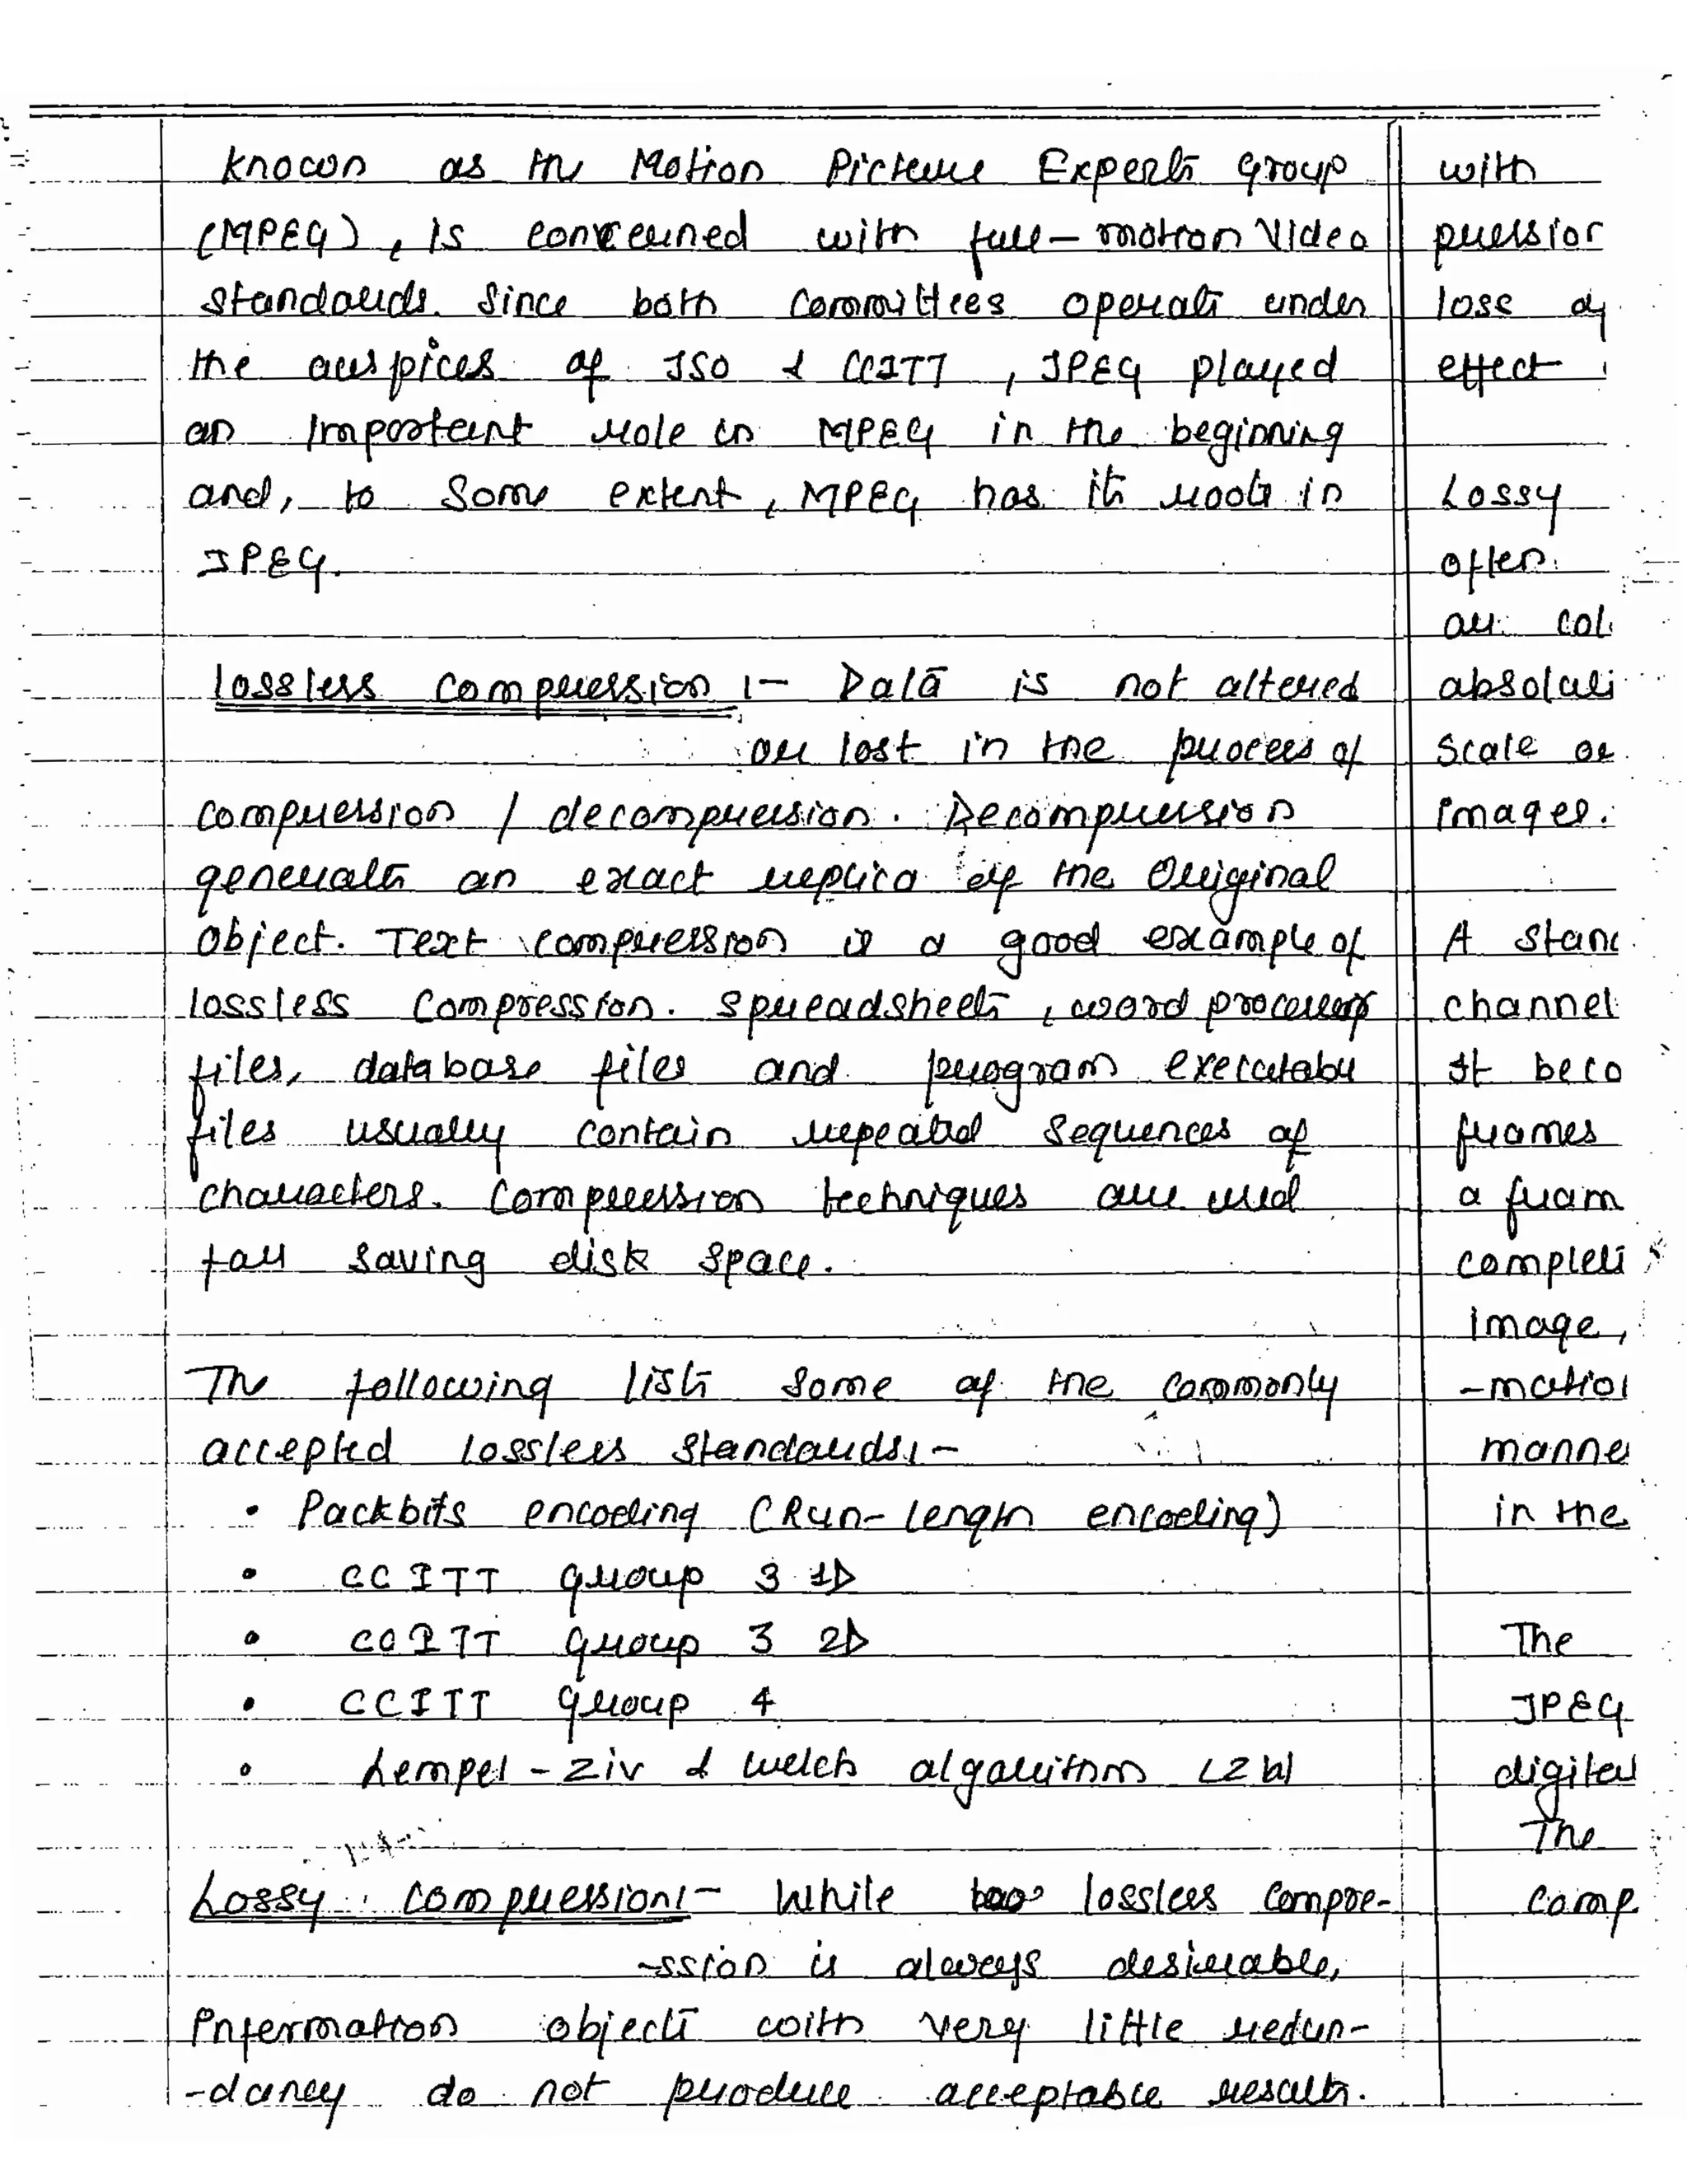 known as the Motion Picture Experts Group
(MPEG), is concerned with full-motion Video
standards. Since both Committees operate under
the auspices of ISO & CCITT, JPEG played
an important role in MPEG in the beginning
and, to some extent, MPEG has its roots in
JPEG.
lossless compression :- Data is not altered
or lost in the process of
compression / decompression. Decompression
generates an exact replica of the Original
object. Text compression is a good example of
lossless compression. Spreadsheets, word processor
files, database files and program executable
files usually contain repeated sequences of
characters. Compression techniques are used
for saving disk space.
The following lists some of the commonly
accepted lossless standards:-
• Packbits encoding (Run-length encoding)
• CCITT group 3 1D
• CCITT group 3 2D
• CCITT group 4
• Lempel-Ziv & Welch algorithm LZW
Lossy compression:- While lossless compre-
-ssion is always desirable,
Information objects with very little redun-
-dancy do not produce acceptable results.
with
pression
loss of
effect
Lossy
often
are col
absolute
Scale or
images.
A stan
channel
It beco
frames
a fram
complete
image,
-mation
manne
in the
The
JPEG
digital
The
comp